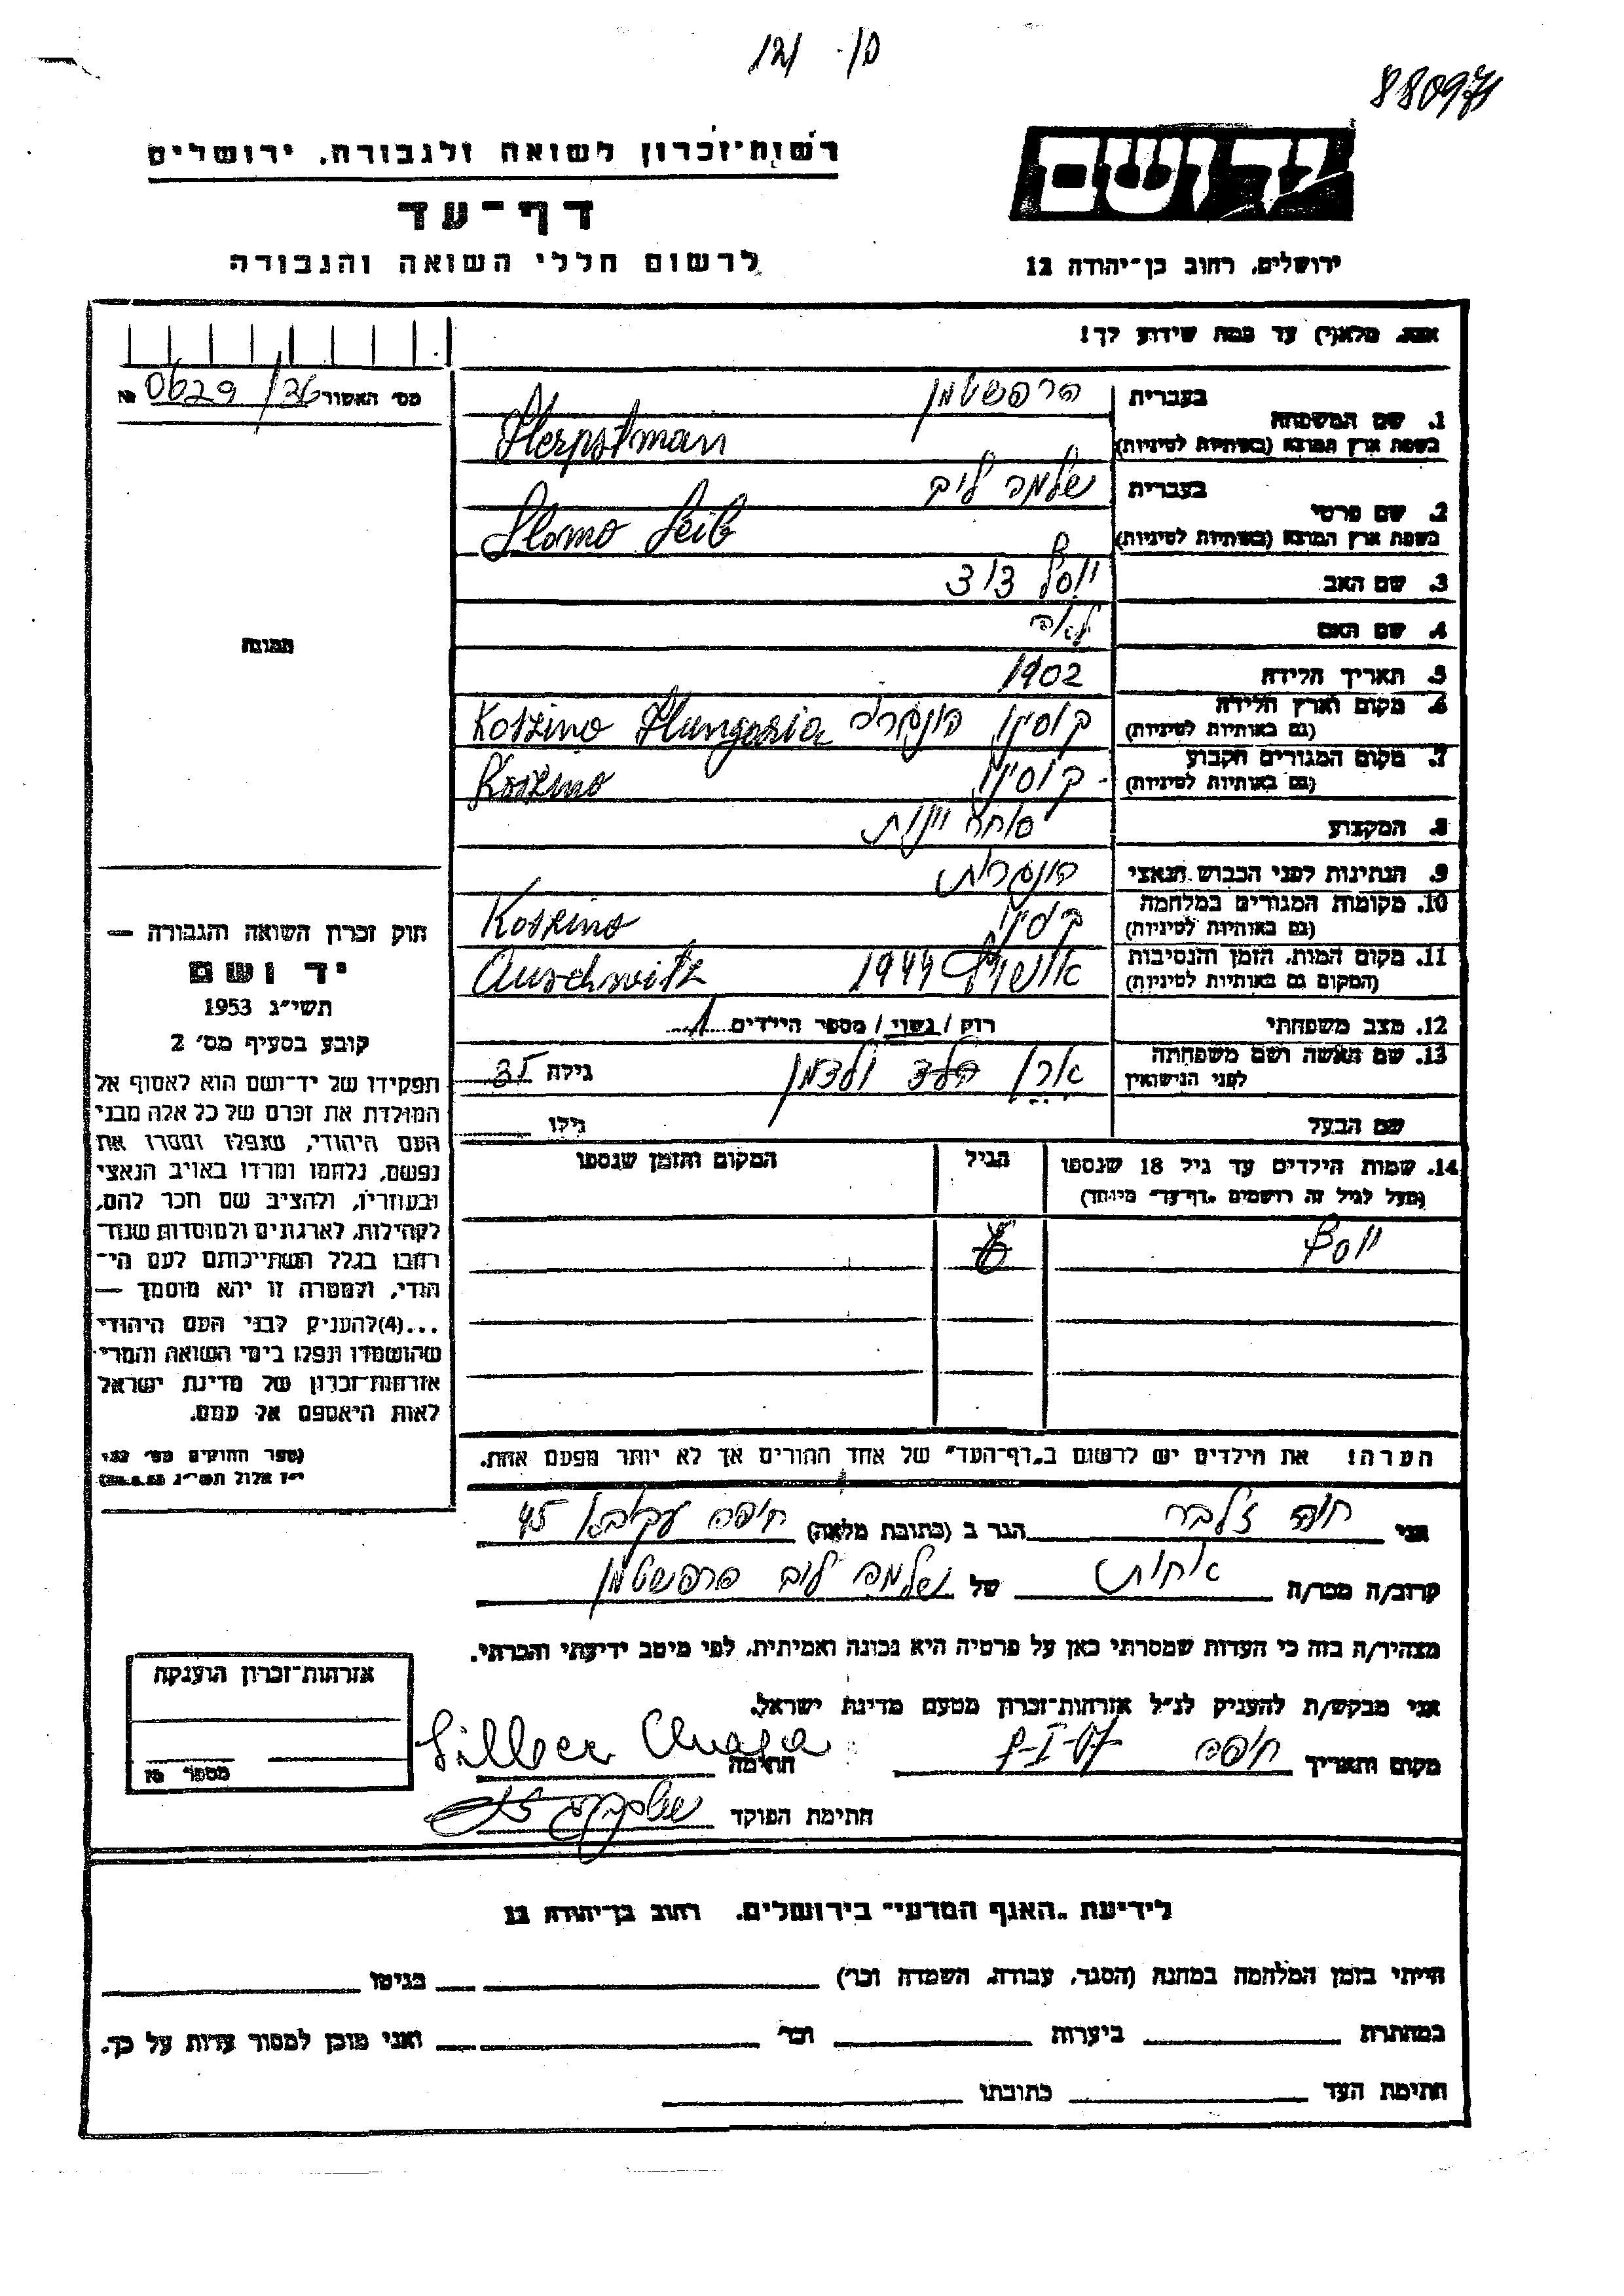 121 -/ס
880971
רשות־זכרון לשואה ולגבורה, ירושלים
יד ושם
דף־עד
לרשום חללי השואה והגבורה
ירושלים, רחוב בן־יהודה 12
אנא, מלא(י) עד כמה שידוע לך!
מס׳ האשור 0629/36 №
בעברית הרפשטמן
1. שם המשפחה
בשפת ארץ המוצא (באותיות לטיניות) Herpstman
בעברית שלמה ליב
2. שם פרטי
בשפת ארץ המוצא (באותיות לטיניות) Slomo Leib
3. שם האב יוסף דוד
4. שם האם לאה
5. תאריך הלידה 1902
6. מקום וארץ הלידה
(גם באותיות לטיניות) קוסינו הונגריה Koszino Hungaria
7. מקום המגורים הקבוע
(גם באותיות לטיניות) קוסינו Koszino
8. המקצוע סוחר יינות
9. הנתינות לפני הכבוש הנאצי הונגרית
10. מקומות המגורים במלחמה
(גם באותיות לטיניות) קוסינו Koszino
11. מקום המות, הזמן והנסיבות
(המקום גם באותיות לטיניות) אושויץ 1944 Auschwitz
12. מצב משפחתי רוק / נשוי / מספר הילדים 1
13. שם האשה ושם משפחתה
לפני הנישואין ולדמן גילה 35
שם הבעל גילו
14. שמות הילדים עד גיל 18 שנספו הגיל המקום והזמן שנספו
(מעל לגיל זה רושמים „דף־עד״ מיוחד)
יוסף 6
הערה! את הילדים יש לרשום ב„דף־העד״ של אחד ההורים אך לא יותר מפעם אחת.
תמונה
חוק זכרון השואה והגבורה —
יד ושם
תשי״ג 1953
קובע בסעיף מס׳ 2
תפקידו של יד־ושם הוא לאסוף אל
המולדת את זכרם של כל אלה מבני
העם היהודי, שנפלו ומסרו את
נפשם, נלחמו ומרדו באויב הנאצי
ובעוזריו, ולהציב שם וזכר להם,
לקהילות, לארגונים ולמוסדות שנח־
רבו בגלל השתייכותם לעם הי־
הודי, ולמטרה זו יהא מוסמך —
...(4)להעניק לבני העם היהודי
שהושמדו ונפלו בימי השואה והמרי
אזרחות־זכרון של מדינת ישראל
לאות היאספם אל עמם.
(ספר החוקים מס׳ 132
י״ז אלול תשי״ג 28.8.53)
אני חוה זילבר הגר ב (כתובת מלאה) חיפה עקיבא 45
קרוב/ה מכר/ה אחות של שלמה ליב הרפשטמן
מצהיר/ה בזה כי העדות שמסרתי כאן על פרטיה היא נכונה ואמיתית, לפי מיטב ידיעתי והכרתי.
אני מבקש/ת להעניק לנ״ל אזרחות־זכרון מטעם מדינת ישראל.
מקום ותאריך חיפה חתימה Silber Chava
חתימת הפוקד
אזרחות־זכרון הוענקה
מספר
לידיעת „האגף המדעי״ בירושלים. רחוב בן־יהודה 12
הייתי בזמן המלחמה במחנה (הסגר, עבודה, השמדה וכו׳) בגיטו
במחתרת ביערות וכו׳ ואני מוכן למסור עדות על כך.
חתימת העד כתובתו